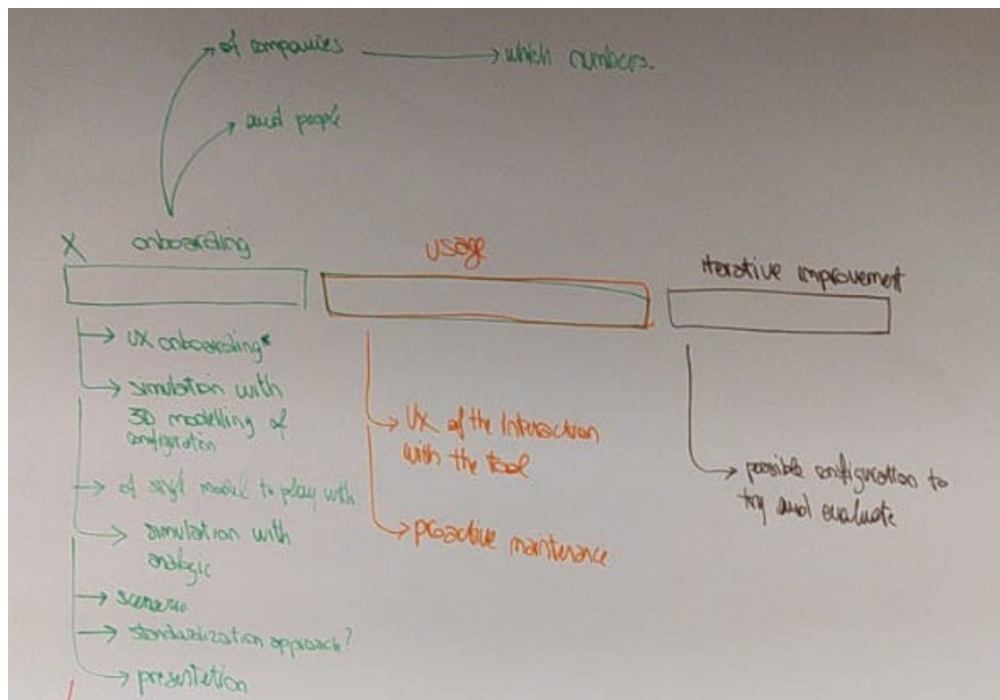 of companies
which numbers.
and people
X
onboarding
usage
iterative improvement
UX onboarding*
simulation with
3D modelling of
configuration
of model to play with
simulation with
analogic
scenario
standardization approach?
presentetion
UX of the Interaction
with the tool
proactive maintenance
possible configuration to
try and evaluate